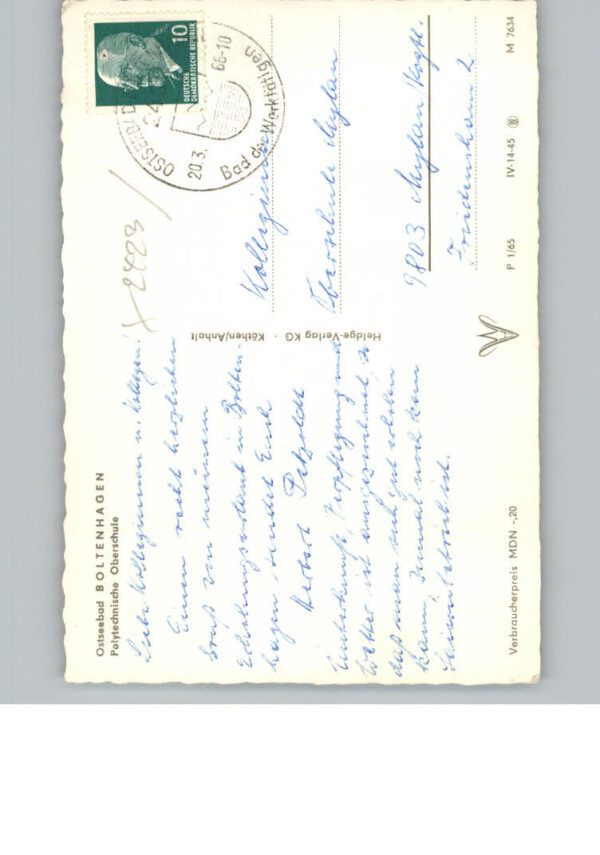 Ostseebad BOLTENHAGEN
Polytechnische Oberschule
Liebe Kolleginnen u. Kollegen!
Einen recht herzlichen
Gruß von meinem
Erholungsurlaub in Bolten-
hagen sendet Euch
Herbert Petzoldt
Unterkunft, Verpflegung und
Wetter ist ausgezeichnet, so
daß man sich gut erholen
kann, zumal noch kein
Saisonbetrieb ist.
Verbraucherpreis MDN -,20
Heldge-Verlag KG · Köthen/Anhalt
DEUTSCHE
DEMOKRATISCHE REPUBLIK
10
OSTSEEBAD
20.3.
66-10
Bad der Werktätigen
2423
Kolleginnen
Oberschule Mylau
9803 Mylau Vogtl.
Friedenshain 2
P 1/65 IV-14-45 M 7634